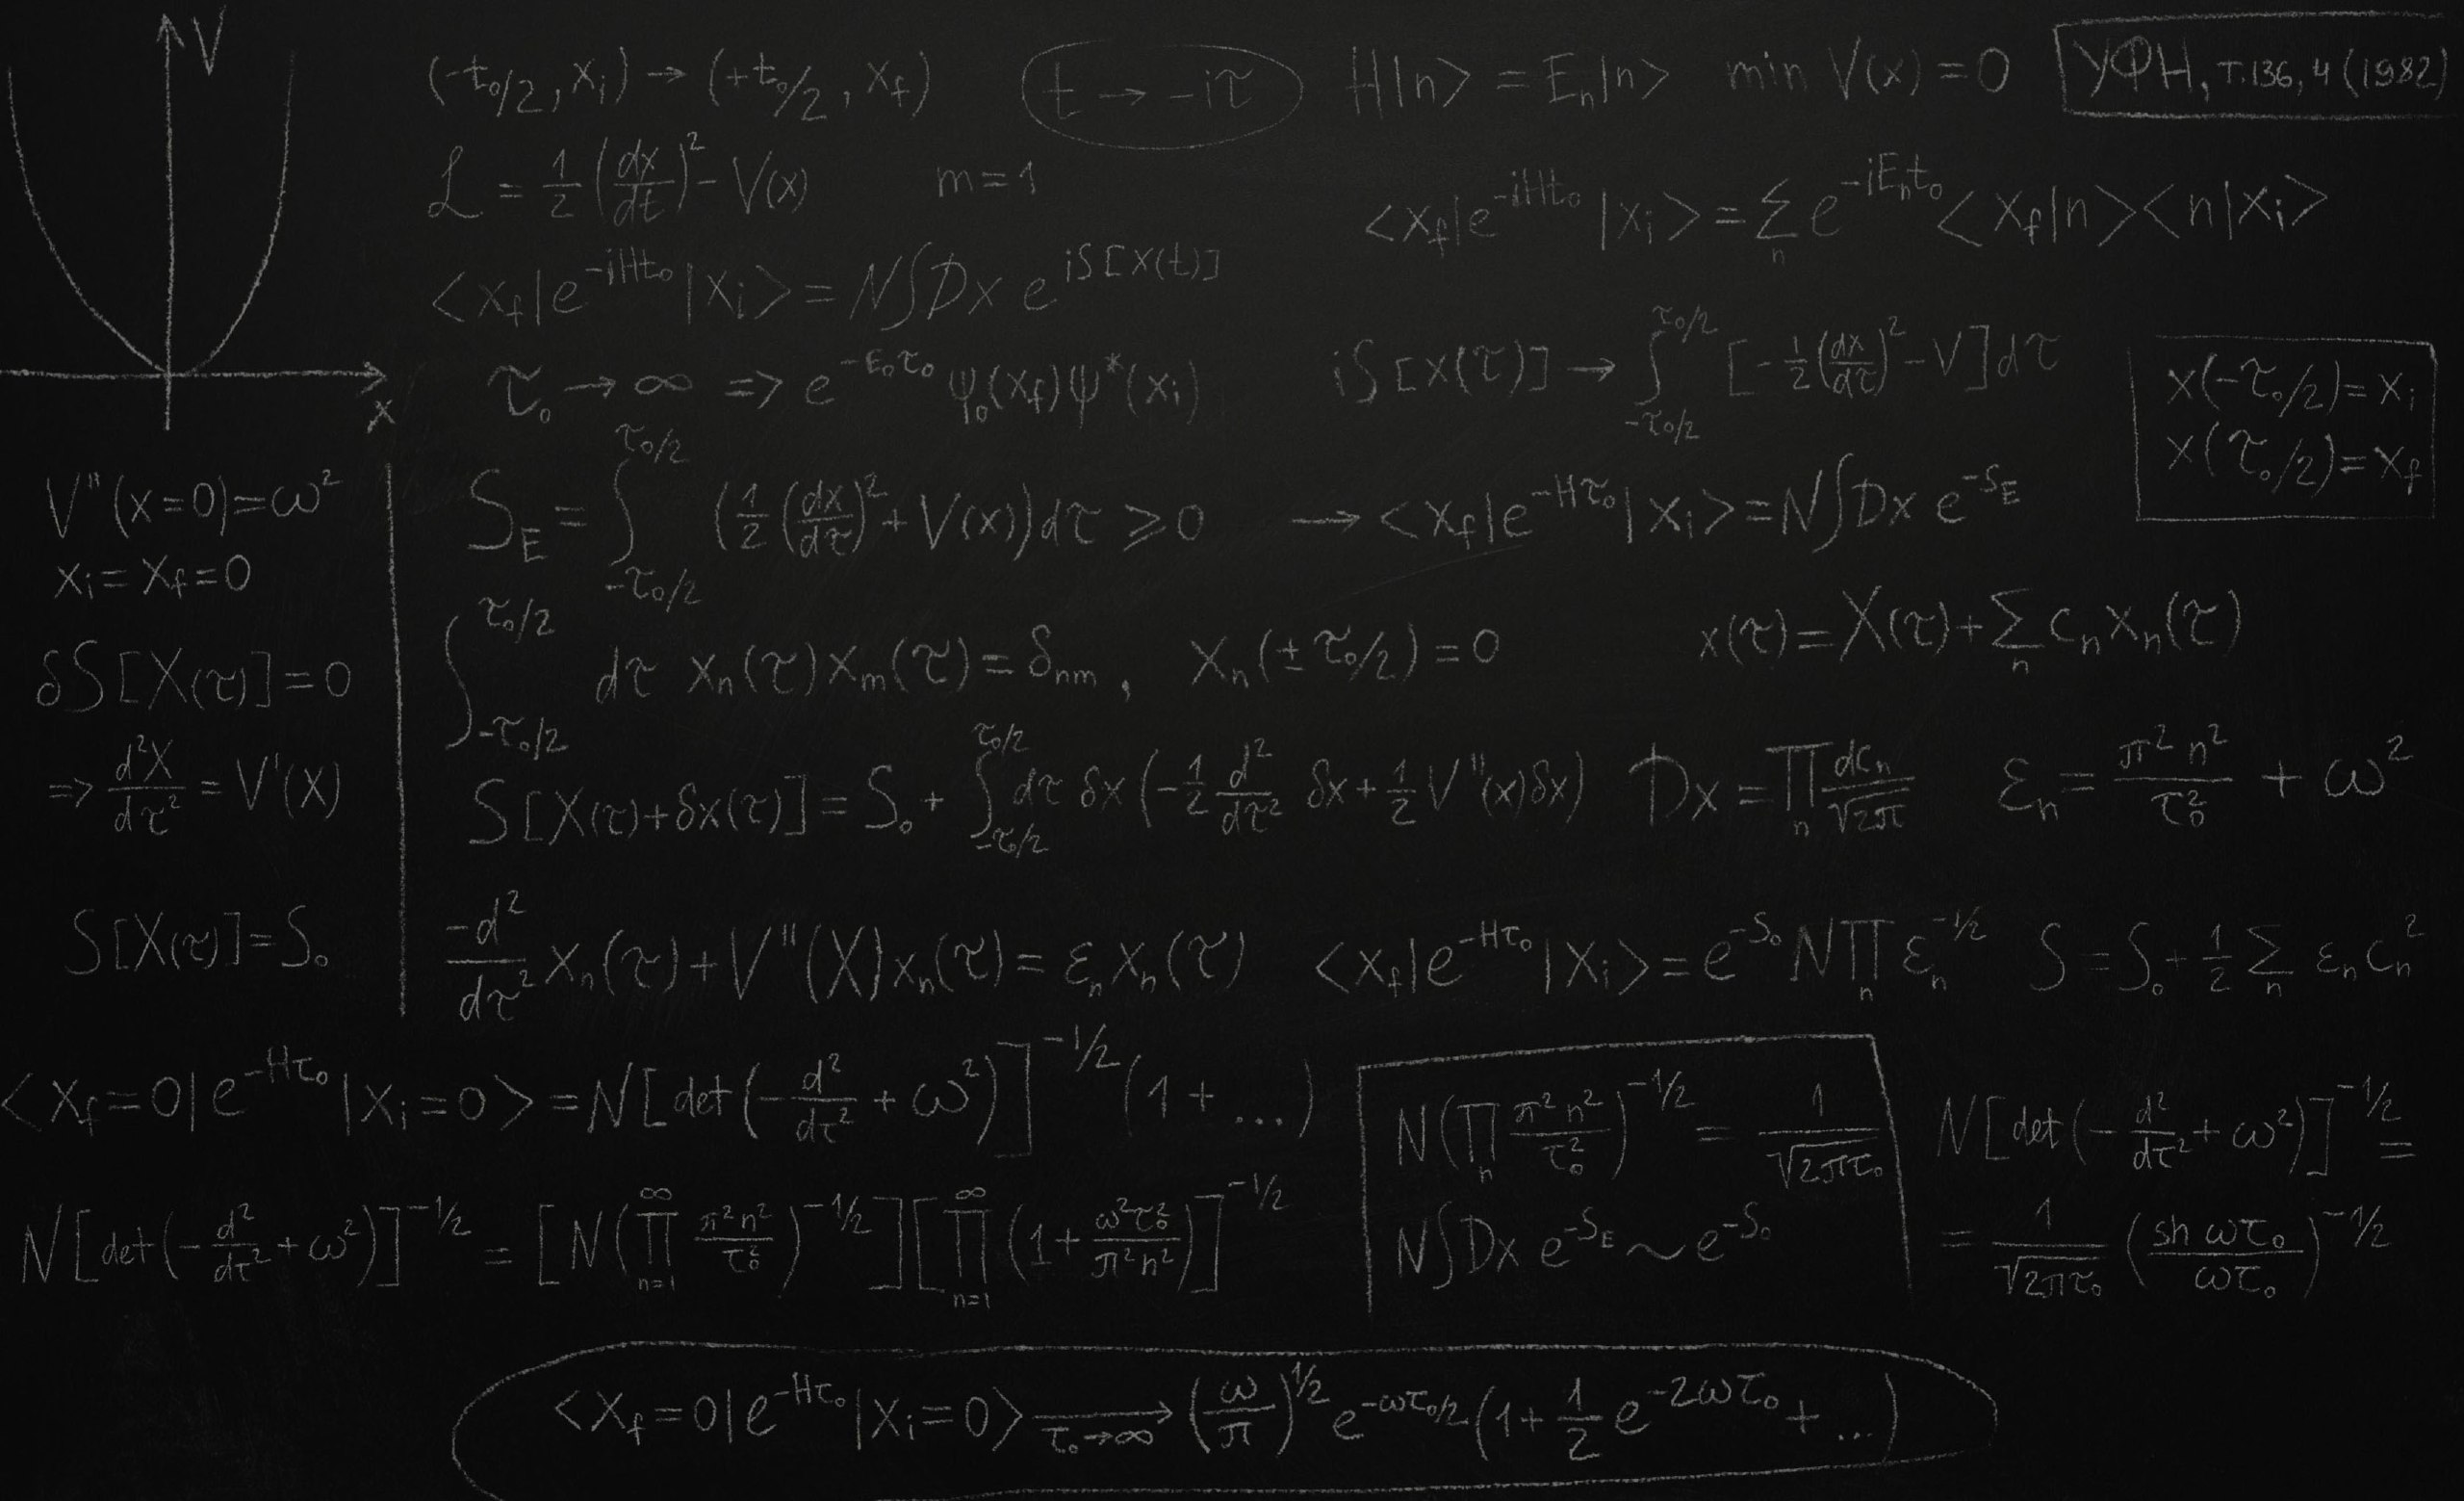 V
(-t₀/2, xᵢ) → (+t₀/2, x_f)
t → -iτ
H|n> = Eₙ|n>
min V(x) = 0
УФН, т.136, 4 (1982)
ℒ = 1/2 (dx/dt)² - V(x) m = 1
<x_f|e^{-iHt₀}|xᵢ> = Σ_n e^{-iEₙt₀} <x_f|n><n|xᵢ>
<x_f|e^{-iHt₀}|xᵢ> = N∫Dx e^{iS[x(t)]}
x
τ₀ → ∞ => e^{-E₀τ₀} ψ₀(x_f)ψ*(xᵢ)
iS[x(τ)] → ∫_{-τ₀/2}^{τ₀/2} [-1/2 (dx/dτ)² - V]dτ
x(-τ₀/2) = xᵢ
x(τ₀/2) = x_f
V''(x=0) = ω²
xᵢ = x_f = 0
δS[X(τ)] = 0
=> d²X/dτ² = V'(X)
S[X(τ)] = S₀
S_E = ∫_{-τ₀/2}^{τ₀/2} (1/2 (dx/dτ)² + V(x))dτ ⩾ 0 → <x_f|e^{-Hτ₀}|xᵢ> = N∫Dx e^{-S_E}
∫_{-τ₀/2}^{τ₀/2} dτ xₙ(τ)xₘ(τ) = δₙₘ, xₙ(±τ₀/2) = 0 x(τ) = X(τ) + Σ_n cₙxₙ(τ)
S[X(τ)+δx(τ)] = S₀ + ∫_{-τ₀/2}^{τ₀/2} dτ δx (-1/2 d²/dτ² δx + 1/2 V''(x)δx) Dx = ∏_n dcₙ/√2π εₙ = π²n²/τ₀² + ω²
-d²/dτ² xₙ(τ) + V''(X)xₙ(τ) = εₙxₙ(τ) <x_f|e^{-Hτ₀}|xᵢ> = e^{-S₀} N∏_n εₙ^{-1/2} S = S₀ + 1/2 Σ_n εₙcₙ²
<x_f=0|e^{-Hτ₀}|xᵢ=0> = N[det(-d²/dτ² + ω²)]^{-1/2} (1 + ...)
N(∏_n π²n²/τ₀²)^{-1/2} = 1/√2πτ₀
N∫Dx e^{-S_E} ~ e^{-S₀}
N[det(-d²/dτ² + ω²)]^{-1/2} =
= 1/√2πτ₀ (sh ωτ₀/ωτ₀)^{-1/2}
N[det(-d²/dτ² + ω²)]^{-1/2} = [N(∏_{n=1}^∞ π²n²/τ₀²)^{-1/2}][∏_{n=1}^∞ (1 + ω²τ₀²/π²n²)]^{-1/2}
<x_f=0|e^{-Hτ₀}|xᵢ=0> →_{τ₀→∞} (ω/π)^{1/2} e^{-ωτ₀/2} (1 + 1/2 e^{-2ωτ₀} + ...)